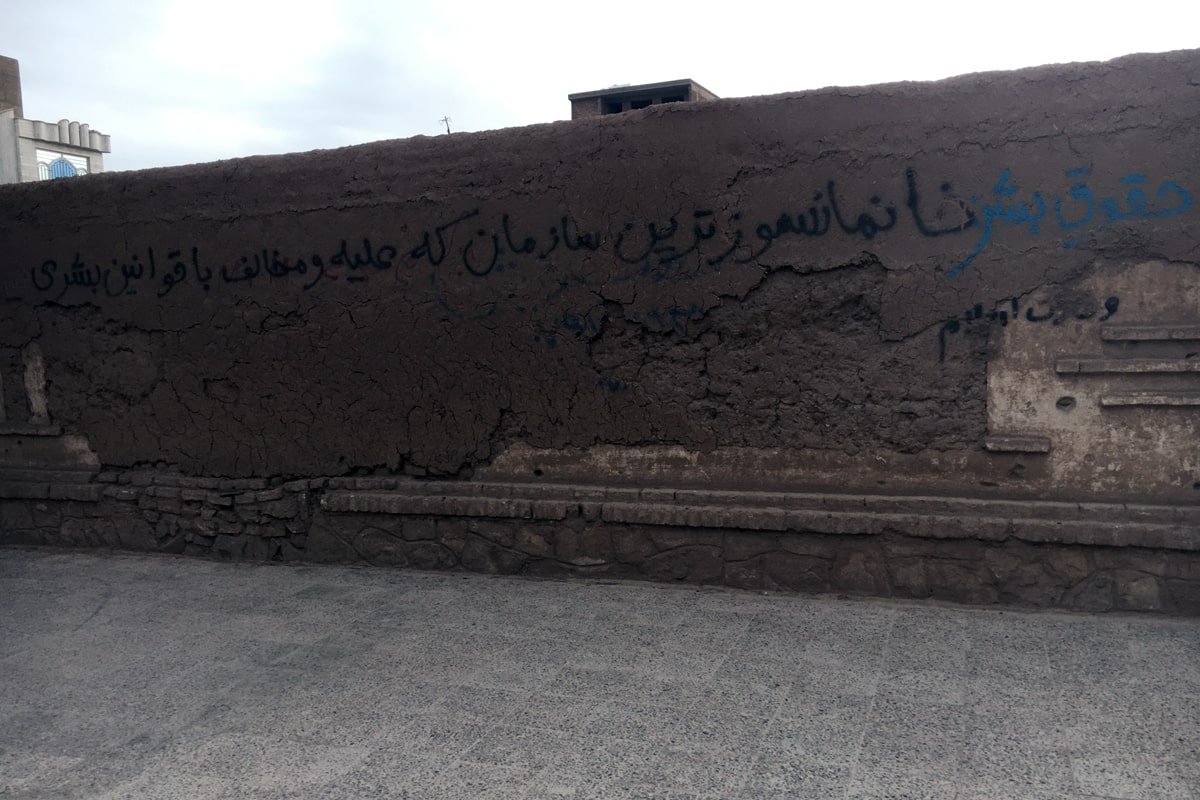 حقوق بشر خانمانسوز ترین سازمان که علیه و مخالف با قوانین بشری
و دین اسلام